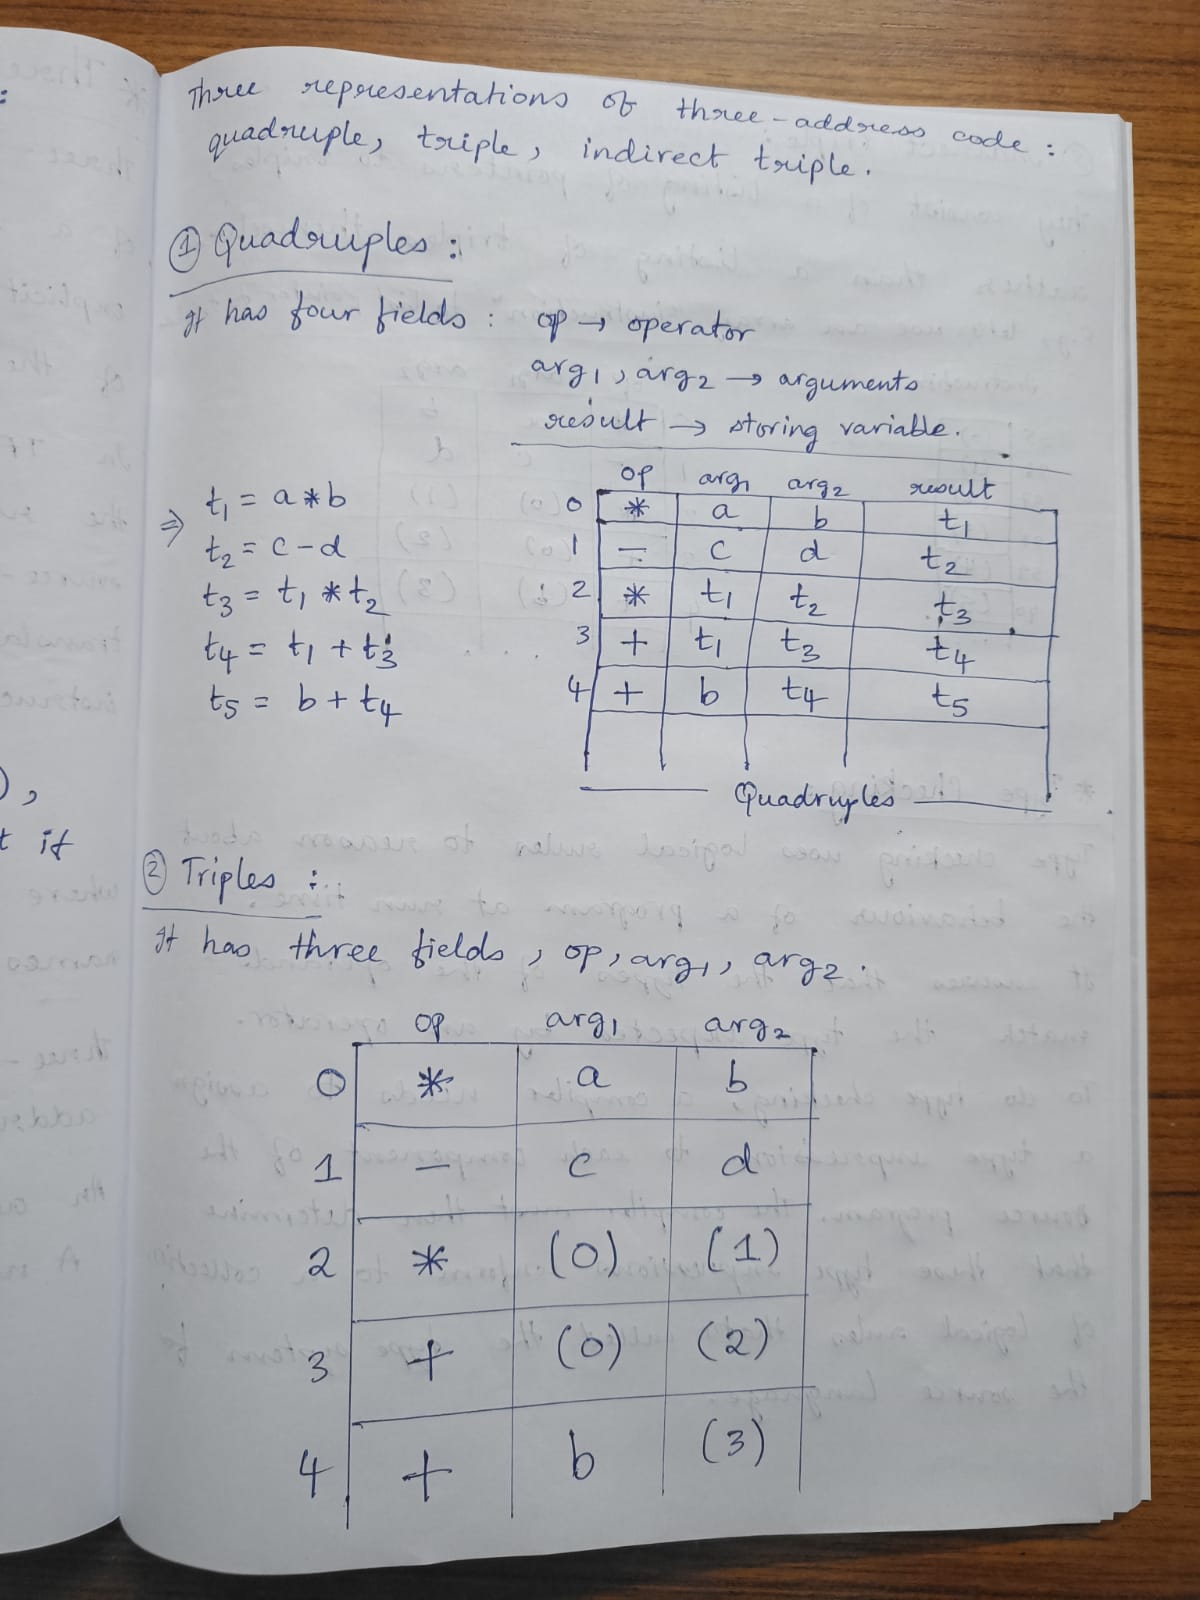 Three representations of three-address code :
quadruple, triple, indirect triple.
① Quadruples :
It has four fields : op → operator
arg1, arg2 → arguments
result → storing variable.
⇒ t1 = a * b
t2 = c - d
t3 = t1 * t2
t4 = t1 + t3
t5 = b + t4
op arg1 arg2 result
0 * a b t1
1 - c d t2
2 * t1 t2 t3
3 + t1 t3 t4
4 + b t4 t5
Quadruples
② Triples :
It has three fields, op, arg1, arg2.
op arg1 arg2
0 * a b
1 - c d
2 * (0) (1)
3 + (0) (2)
4 + b (3)